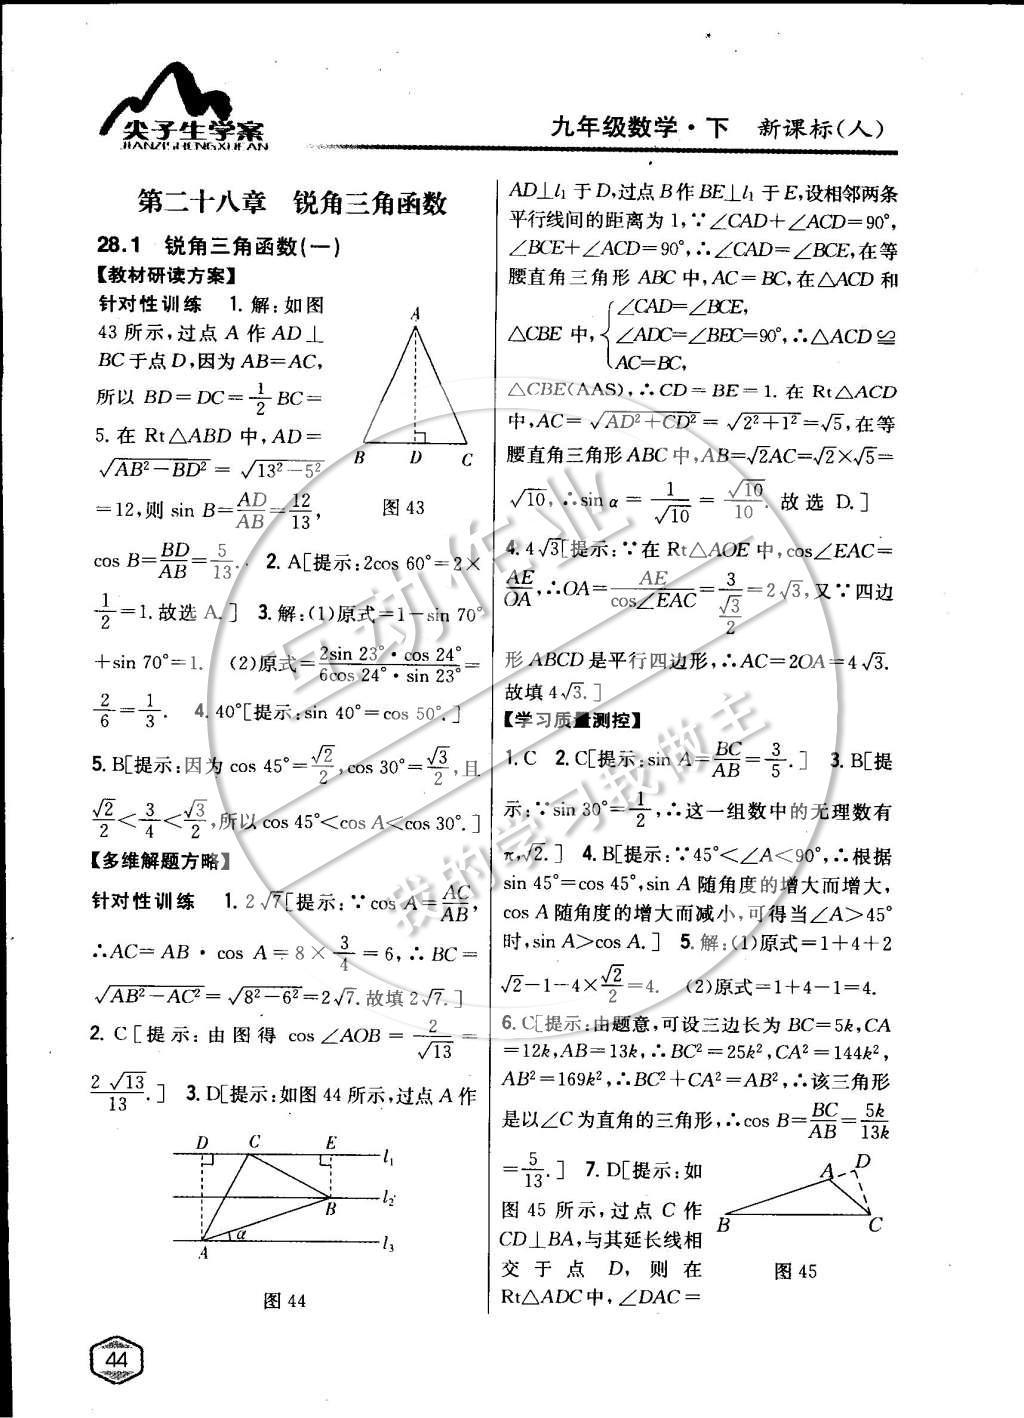 尖子生学案
JIANZISHENGXUEAN
九年级数学·下 新课标(人)
第二十八章 锐角三角函数
28.1 锐角三角函数(一)
【教材研读方案】
针对性训练 1. 解:如图
43 所示,过点 A 作 AD⊥
BC于点 D,因为 AB=AC,
所以 BD=DC=1/2 BC=
5. 在 Rt△ABD 中,AD=
√(AB²-BD²) = √(13²-5²)
=12,则 sin B=AD/AB=12/13,
A
B D C
图 43
cos B=BD/AB=5/13. 2. A[提示:2cos 60°=2×
1/2=1. 故选 A.] 3. 解:(1)原式=1-sin 70°
+sin 70°=1. (2)原式=(2sin 23°·cos 24°)/(6cos 24°·sin 23°)=
2/6=1/3. 4. 40°[提示:sin 40°=cos 50°.]
5. B[提示:因为 cos 45°=√2/2,cos 30°=√3/2,且
√2/2<3/4<√3/2,所以 cos 45°<cos A<cos 30°.]
【多维解题方略】
针对性训练 1. 2√7[提示:∵cos A=AC/AB,
∴AC=AB·cos A=8×3/4=6,∴BC=
√(AB²-AC²)=√(8²-6²)=2√7. 故填 2√7.]
2. C[提示:由图得 cos∠AOB=2/√13=
2√13/13.] 3. D[提示:如图 44 所示,过点 A 作
D C E l₁
B l₂
A α l₃
图 44
44
AD⊥l₁ 于 D,过点 B 作 BE⊥l₁ 于 E,设相邻两条
平行线间的距离为 1,∵∠CAD+∠ACD=90°,
∠BCE+∠ACD=90°,∴∠CAD=∠BCE,在等
腰直角三角形 ABC 中,AC=BC,在△ACD 和
△CBE 中,{∠CAD=∠BCE,
∠ADC=∠BEC=90°,∴△ACD≌
AC=BC,
△CBE(AAS),∴CD=BE=1. 在 Rt△ACD
中,AC=√(AD²+CD²)=√(2²+1²)=√5,在等
腰直角三角形 ABC 中,AB=√2AC=√2×√5=
√10,∴sin α=1/√10=√10/10. 故选 D.]
4. 4√3[提示:∵在 Rt△AOE 中,cos∠EAC=
AE/OA,∴OA=AE/cos∠EAC=3/(√3/2)=2√3,又∵四边
形 ABCD 是平行四边形,∴AC=2OA=4√3.
故填 4√3.]
【学习质量测控】
1. C 2. C[提示:sin A=BC/AB=3/5.] 3. B[提
示:∵sin 30°=1/2,∴这一组数中的无理数有
π,√2.] 4. B[提示:∵45°<∠A<90°,∴根据
sin 45°=cos 45°,sin A 随角度的增大而增大,
cos A 随角度的增大而减小,可得当∠A>45°
时,sin A>cos A.] 5. 解:(1)原式=1+4+2
√2-1-4×√2/2=4. (2)原式=1+4-1=4.
6. C[提示:由题意,可设三边长为 BC=5k,CA
=12k,AB=13k,∴BC²=25k²,CA²=144k²,
AB²=169k²,∴BC²+CA²=AB²,∴该三角形
是以∠C 为直角的三角形,∴cos B=BC/AB=5k/13k
=5/13.] 7. D[提示:如
图 45 所示,过点 C 作
CD⊥BA,与其延长线相
交于点 D,则在
Rt△ADC 中,∠DAC=
A D
B C
图 45
互动作业
我的学习我做主